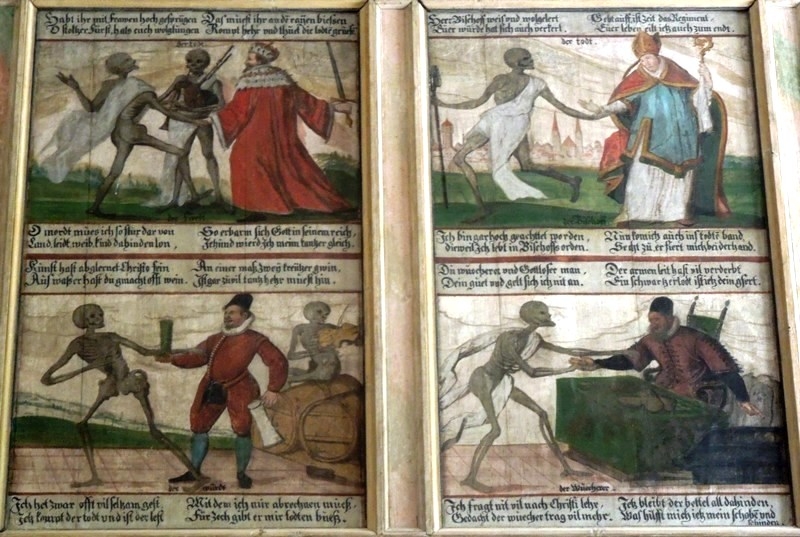 Habt ihr mit frawen hoch gesprügen
O stoltzer Fürst, hats euch
Das müest ihr an der
Kompt hehr und thuet die todtē grüeß.
der todt
der Fürst
O mordt mües ich so stür dar von
Land, leidt, weib, kind dahinden lon,
So erbarm sich Gott in seinem reich,
Jehünd wierd Ich meim tantzer gleich.
Herr Bischoff weis und wolgelert
Eüer würde hat sich auch verkert.
Gebt auff, ist zeit das Regiment.
Eüer leben eilt ietz auch zum endt.
der todt.
Bischoff
Ich bin gar hoch geachttet worden,
dieweil Ich lebt in Bischoffs orden.
Nun kom ich auch ins todts band,
Seht zu, er fiert mich bei der hand.
Kunst hast abglernet Christo fein
Aus waßer hast du gmacht offt wein.
An einer maß zwen kreützer gwin,
du müest hin.
der würdt
Ich het zwar offt vil selzam gest
Ietz kompt der todt und ist der lest
Mit dem ich mir abrechnen mues
Für Zech gibt er mir todten büeß.
Du wuecherer und Gottloser man,
Dein guet und gelt sich ich nit an.
Der armen leit hast vil verderbt
Ein schwartzer todt ist ietz dein gfert.
der Wuecherer
Ich fragt nit vil nach Christi lehr,
Gedacht der wuecher trag vil mehr.
Ietz bleibt der bettel all dahinden,
Was hilfft mich ietz mein schaben und
schinden.